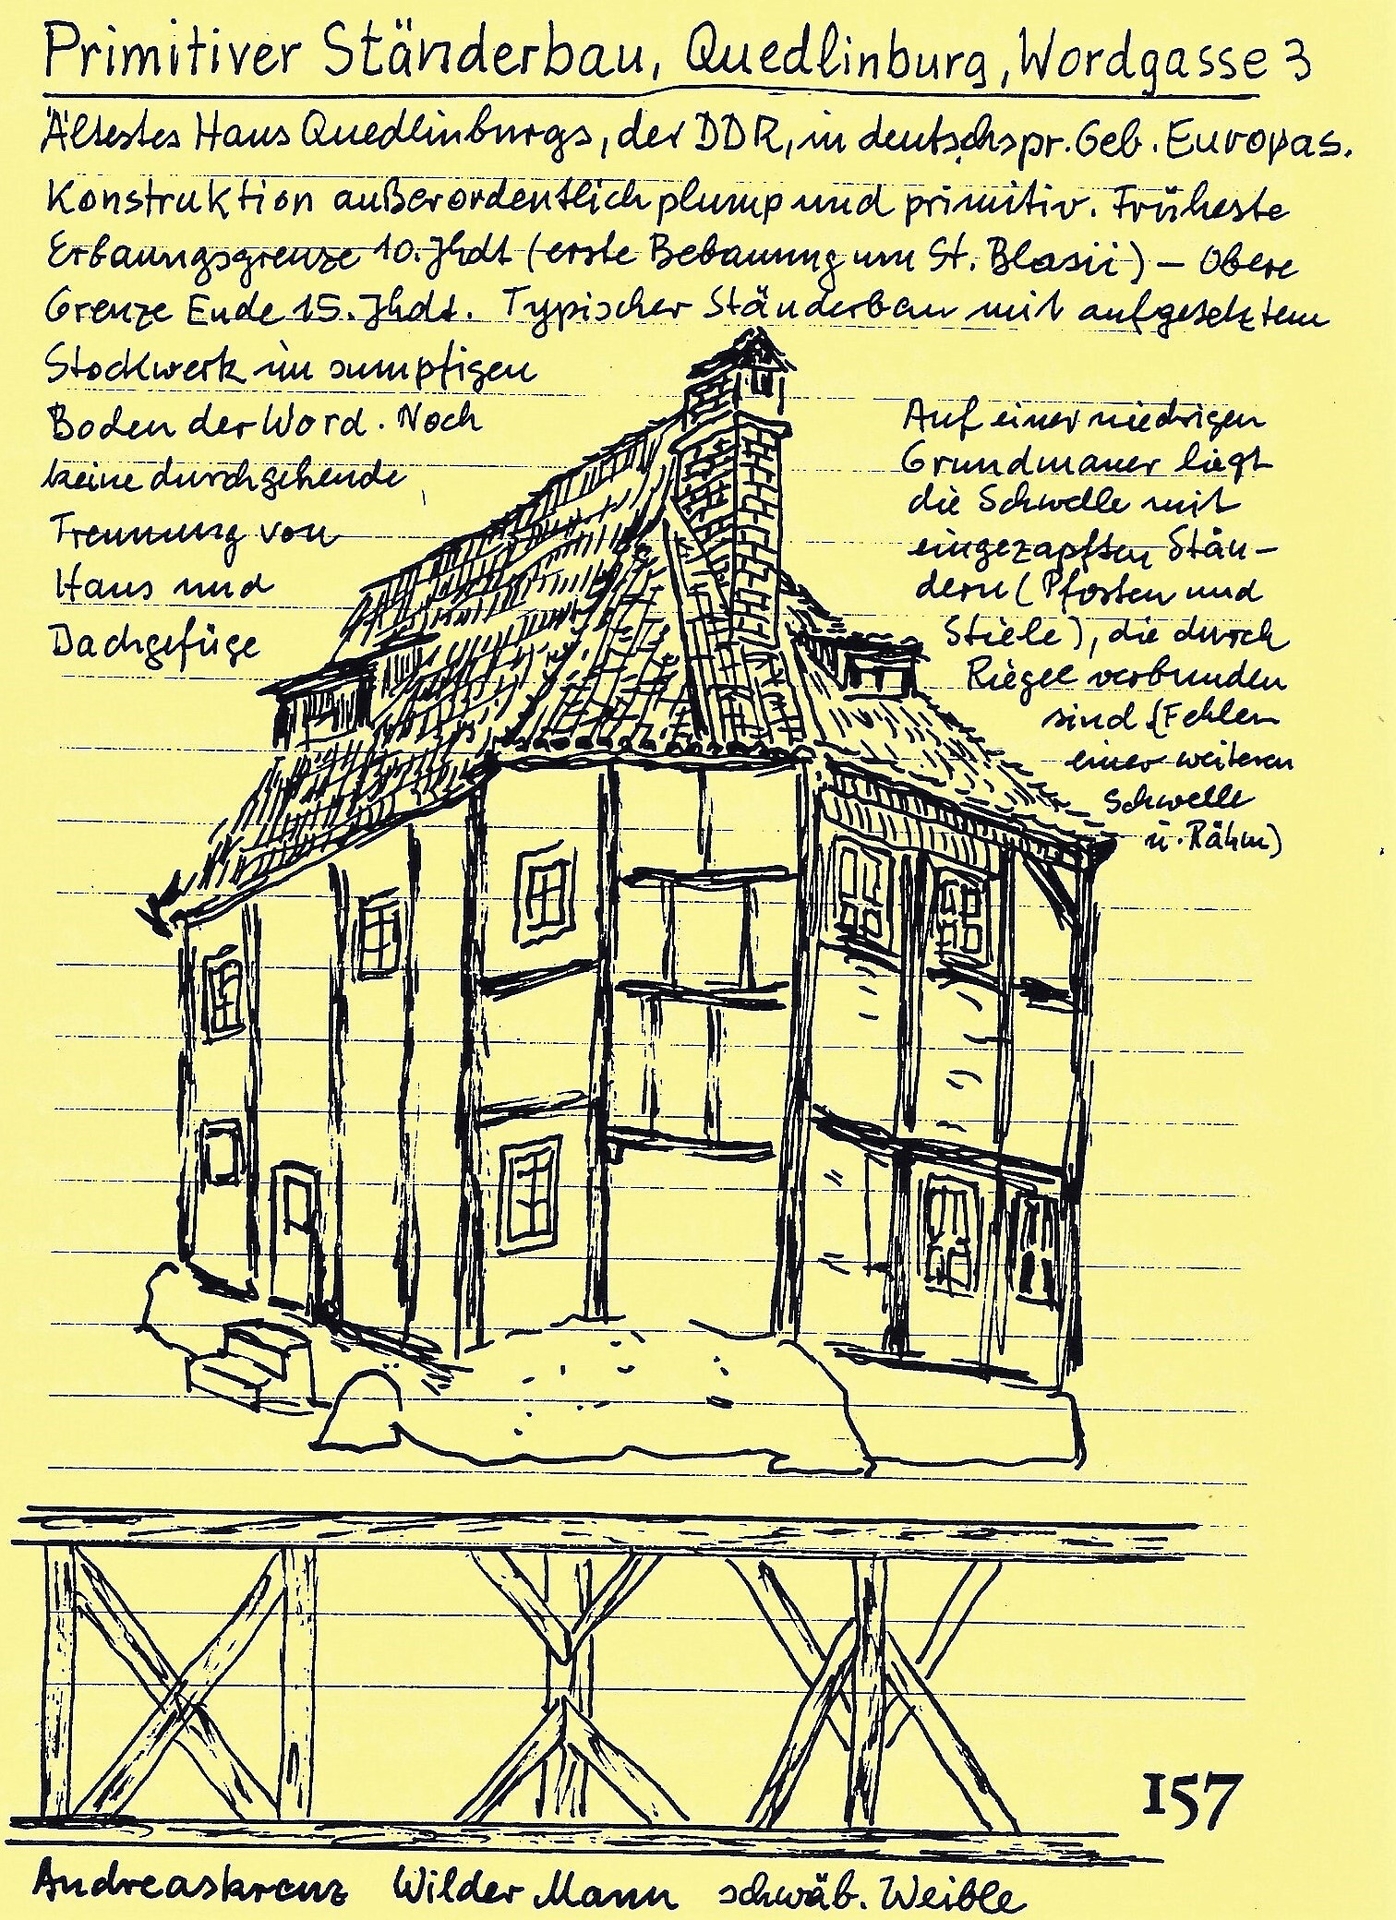 Primitiver Ständerbau, Quedlinburg, Wordgasse 3
Ältestes Haus Quedlinburgs, der DDR, in deutschspr. Geb. Europas.
Konstruktion außerordentlich plump und primitiv. Früheste
Erbauungsgrenze 10. Jhdt (erste Bebauung um St. Blasii) – Obere
Grenze Ende 15. Jhdt. Typischer Ständerbau mit aufgesetztem
Stockwerk im sumpfigen
Boden der Word. Noch
keine durchgehende
Trennung von
Haus und
Dachgefüge
Auf einer niedrigen
Grundmauer liegt
die Schwelle mit
eingezapften Stän-
dern (Pfosten und
Stiele), die durch
Riegel verbunden
sind (Fehlen
einer weiteren
Schwelle
u. Rähm)
157
Andreaskreuz Wilder Mann schwäb. Weible